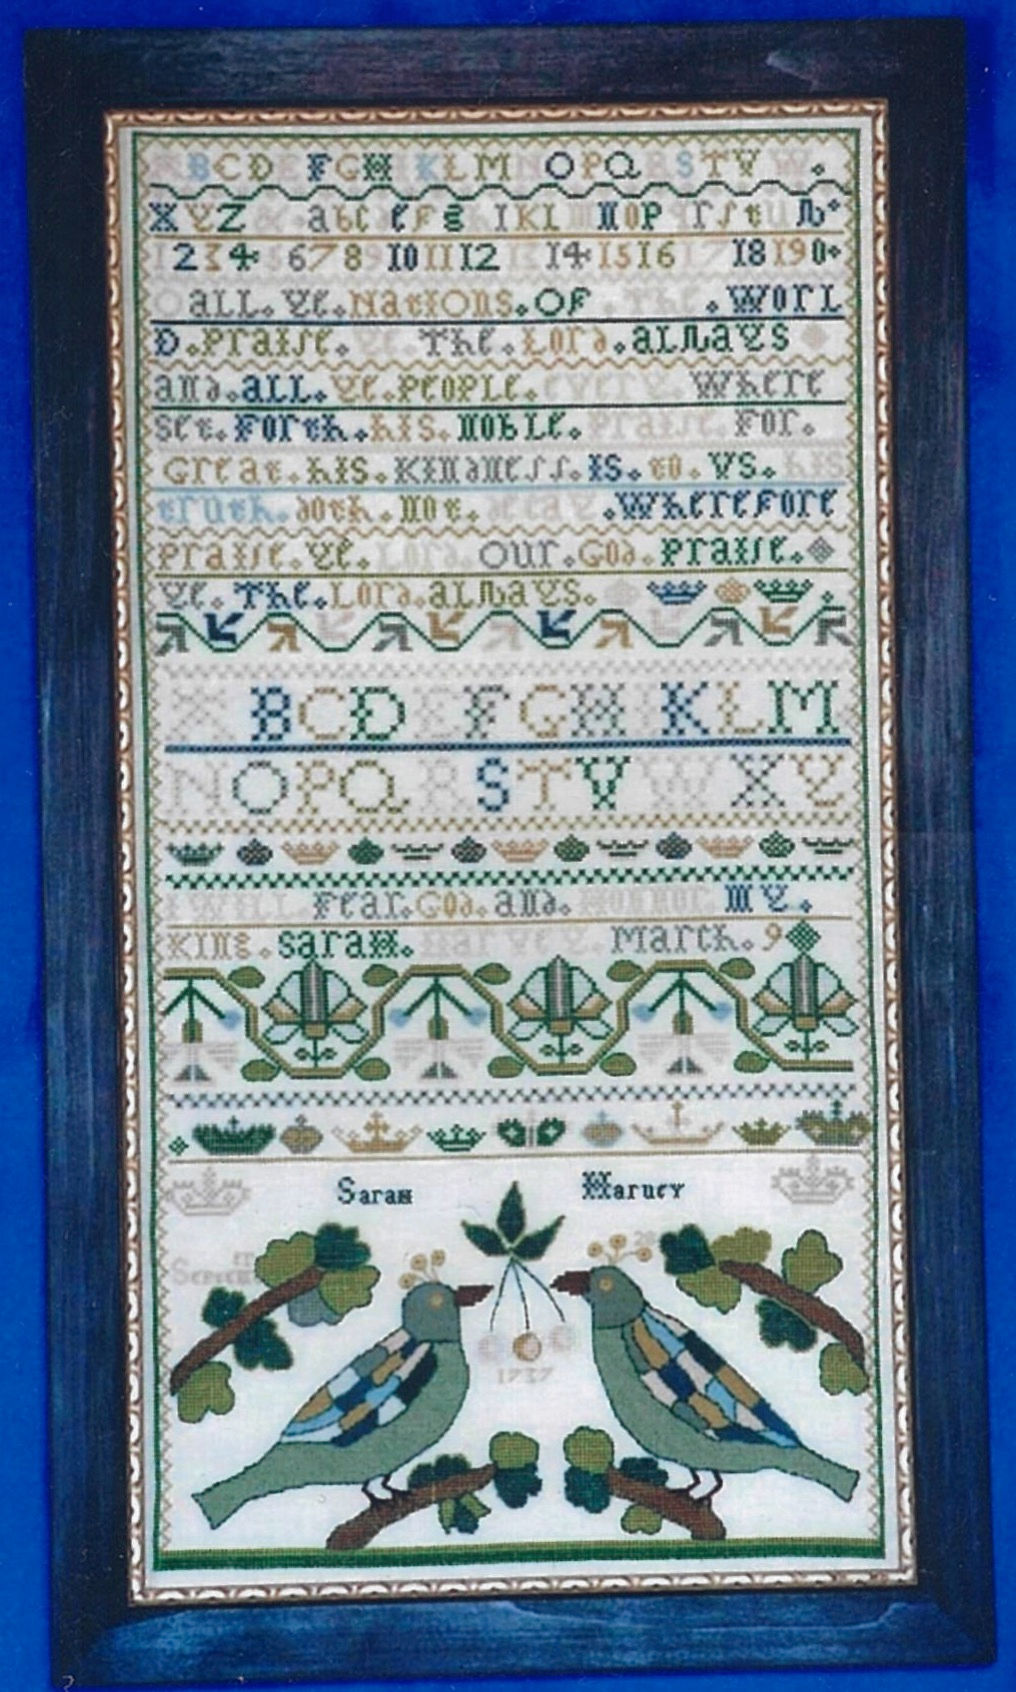 A B C D E F G H I K L M N O P Q R S T V W .
X Y Z & a b c d e f g h I K L m n o P q r s t u w
1 2 3 4 5 6 7 8 9 10 11 12 13 14 15 16 17 18 19 0
O all. ye. Nations. OF. The. Worl
D. Praise. ye. The. Lord. always
and. all. ye. People. every. Where
set. Forth. his. Noble. Praise. For.
Great. his. Kindness. is. to. vs. his
truth. doth. Not. decay. Wherefore
Praise. ye. Lord. our. God. Praise.
ye. The. Lord. always.
A B C D E F G H I K L M
N O P Q R S T V W X Y
I Will. Fear. God. and. Honnor. my.
King. Sarah. Harvey. March. 9
Sarah Harvey
1737